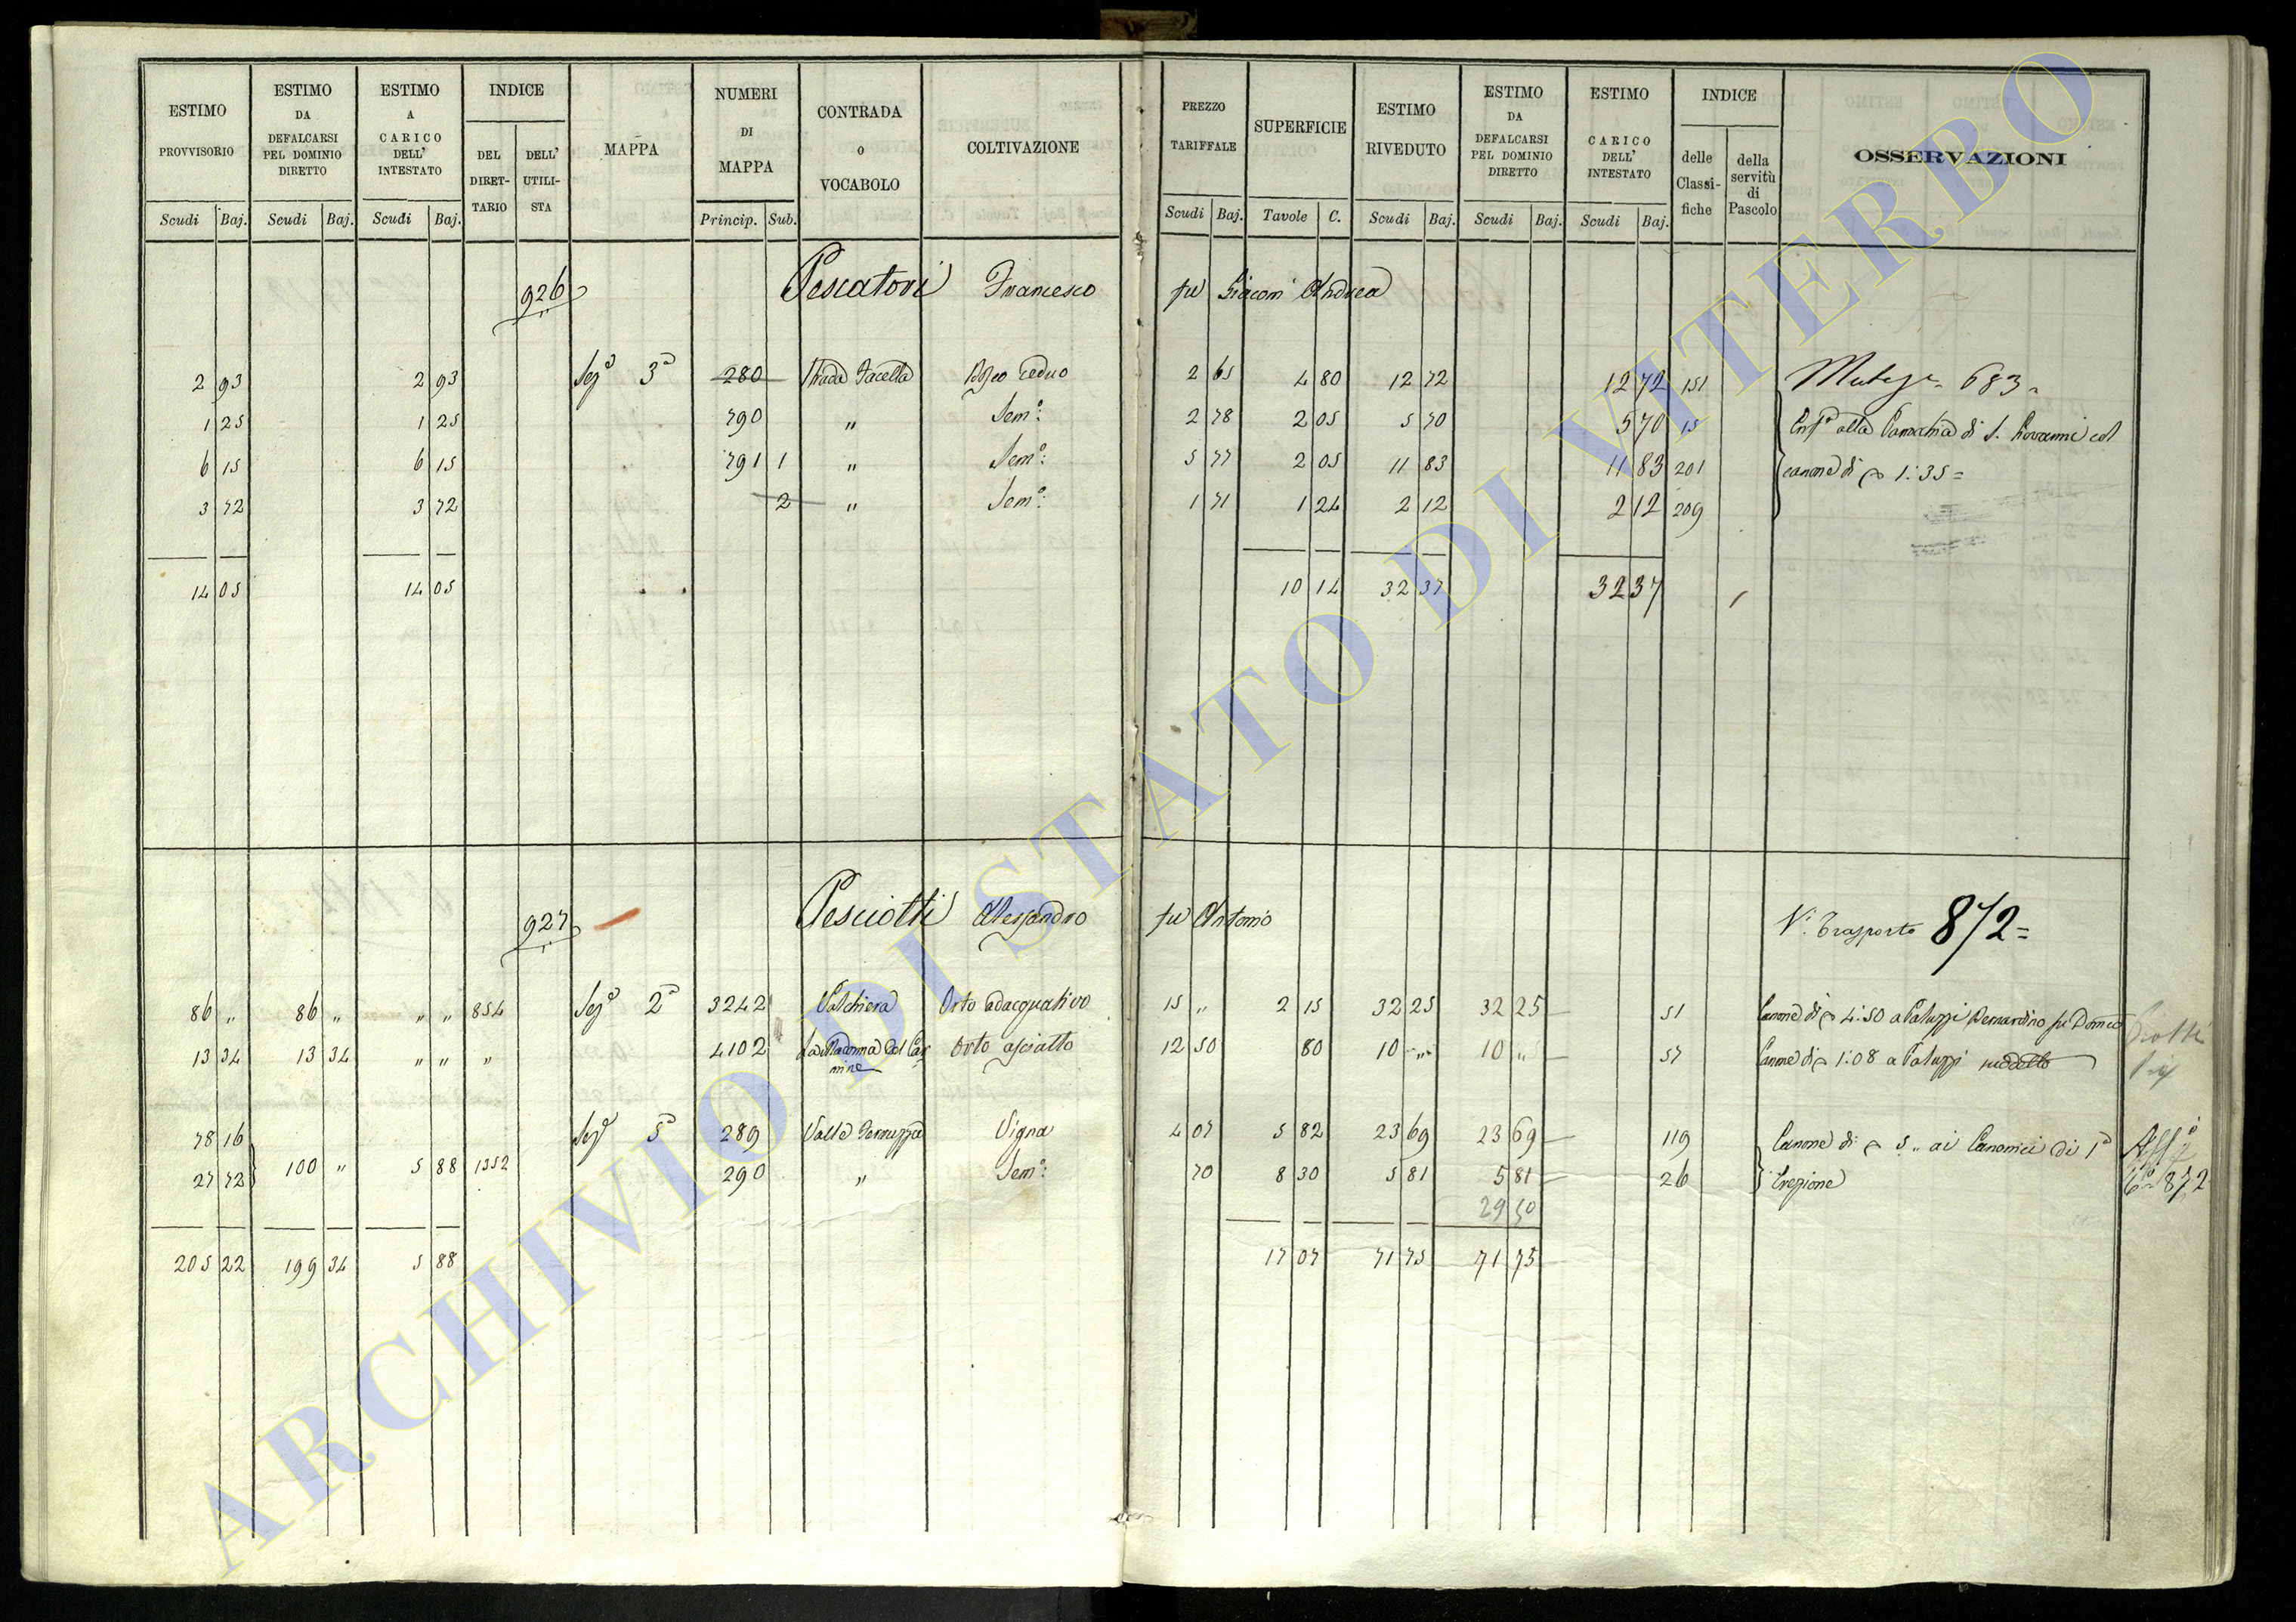 ESTIMO PROVVISORIO Scudi Baj. ESTIMO DA DEFALCARSI PEL DOMINIO DIRETTO Scudi Baj. ESTIMO A CARICO DELL' INTESTATO Scudi Baj. INDICE DEL DIRETTARIO DELL' UTILISTA MAPPA NUMERI DI MAPPA Princip. Sub. CONTRADA O VOCABOLO COLTIVAZIONE PREZZO TARIFFALE Scudi Baj. SUPERFICIE Tavole C. ESTIMO RIVEDUTO Scudi Baj. ESTIMO DA DEFALCARSI PEL DOMINIO DIRETTO Scudi Baj. ESTIMO A CARICO DELL' INTESTATO Scudi Baj. INDICE delle Classifiche della servitù di Pascolo OSSERVAZIONI
926 Pescatori Francesco fu Giacom' Andrea
2 93 2 93 Sezª 3ª 280 Bosco Ceduo 2 65 4 80 12 72 12 72 151 683
1 25 1 25 790 " Semº: 2 78 2 05 5 70 5 70 15 alla di S. Giovanni col
6 15 6 15 791 1 " Semº: 5 77 2 05 11 83 11 83 201 canone di 1:35=
3 72 3 72 2 " Semº: 1 71 1 24 2 12 2 12 209
14 05 14 05 10 14 32 37 32 37
927 Pesciotti Alessandro fu Antonio N: Trasporto 872=
86 " 86 " " " 854 Sezª 2ª 3242 Valchiera Orto adacquativo 15 " 2 15 32 25 32 25 51 Canone di 4:50 a Paluzzi Bernardino fu Domco
13 34 13 34 " " " 4102 La Madonna del Carmine Orto asciatto 12 50 80 10 " 10 " 57 Canone di 1:08 a Paluzzi suddetto
78 16 Sezª 5ª 289 Valle Vigna 4 07 5 82 23 69 23 69 119 Canone di 5 " ai Canonici di 1ª
27 72 100 " 5 88 1352 290 " Semº: 70 8 30 5 81 5 81 26 Erezione 872
29 50
205 22 199 34 5 88 17 07 71 75 71 75
ARCHIVIO DI STATO DI VITERBO